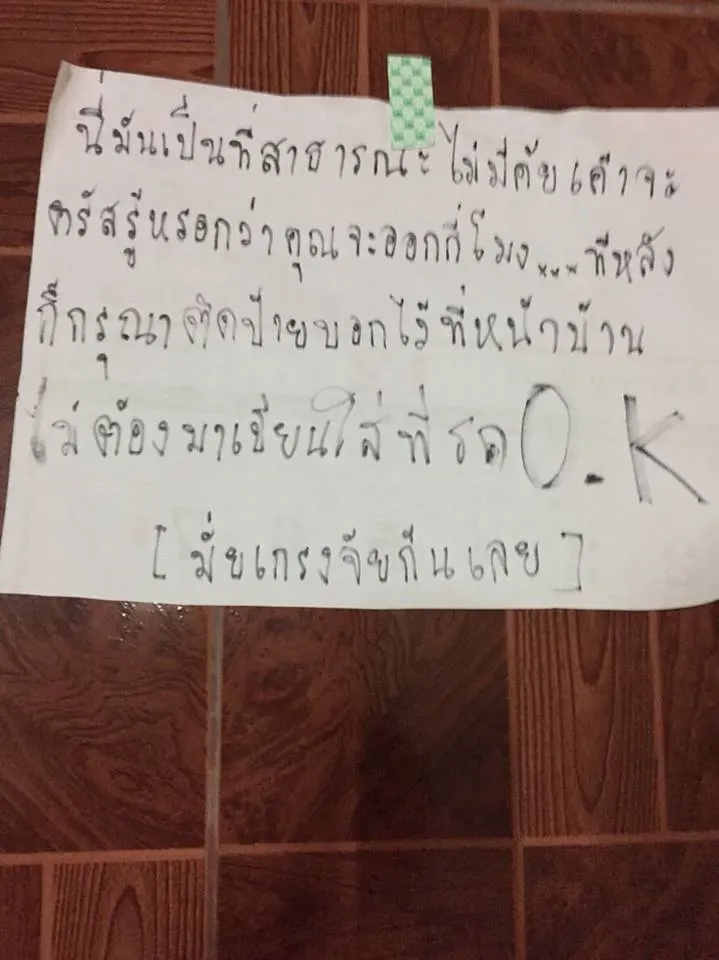 นี่มันเป็นที่สาธารณะ ไม่มีคัยเค้าจะ
ตรัสรู้หรอกว่าคุณจะออกกี่โมง...ทีหลัง
ก็กรุณาติดป้ายบอกไว้ที่หน้าบ้าน
ไม่ต้องมาเขียนใส่ที่รถ O.K
[มั่ยเกรงจัยกันเลย]